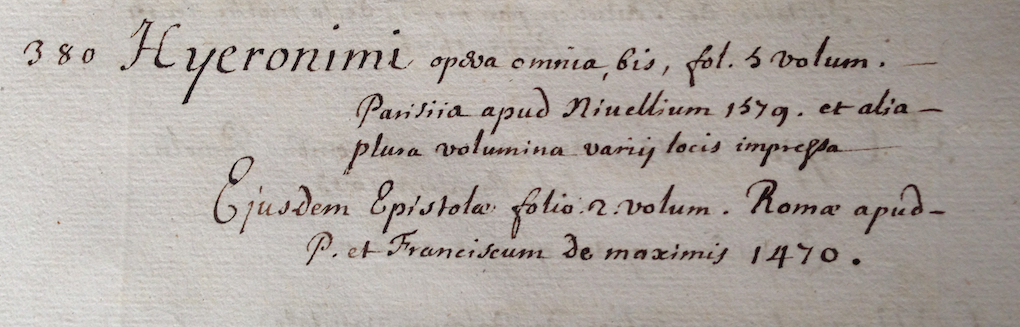 380 Hyeronimi opera omnia, bis, fol. 5 volum. —
Parisiis apud Nivellium 1579. et alia —
plura volumina variij locis impressa —
Ejusdem Epistolæ folio. 2. volum. Romæ apud —
P. et Franciscum de maximis 1470.